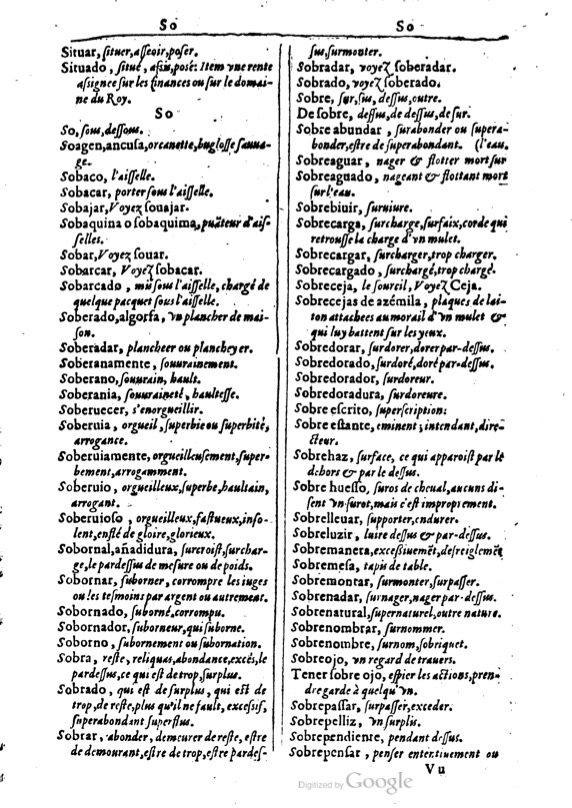 So
So
Situar, ſituer, aſſeoir, poſer.
Situado, ſitué, aſsis, posé: Item vne rente
aſsignee ſur les finances ou ſur le domai-
ne du Roy.
So
So, ſous, deſſous.
Soagen, ancuſa, orcanette, bugloſſe ſauua-
ge.
Sobaco, l'aiſſelle.
Sobacar, porter ſous l'aiſſelle.
Sobajar, Voyez ſouajar.
Sobaquina o ſobaquima, puãteur d'aiſ-
ſelles.
Sobar, Voyez ſouar.
Sobarcar, Voyez ſobacar.
Sobarcado, mis ſous l'aiſſelle, chargé de
quelque pacquet sous l'aiſſelle.
Soberado, algorfa, vn plancher de mai-
ſon.
Soberadar, plancheer ou plancheyer.
Soberanamente, ſouurainement.
Soberano, ſouurain, hault.
Soberania, ſouuraineté, haulteſſe.
Soberuecer, s'enorgueillir.
Soberuia, orgueil, ſuperbie ou ſuperbité,
arrogance.
Soberuiamente, orgueilleuſement, ſuper-
bement, arrogamment.
Soberuio, orgueilleux, ſuperbe, haultain,
arrogant.
Soberuioſo, orgueilleux, faſtueux, inſo-
lent, enflé de gloire, glorieux.
Sobornal, añadidura, ſurcroiſt, ſurchar-
ge, le pardeſſus de meſure ou de poids.
Sobornar, ſuborner, corrompre les iuges
ou les teſmoins par argent ou autrement.
Sobornado, ſuborné, corrompu.
Sobornador, ſuborneur, qui ſuborne.
Soborno, ſubornement ou ſubornation.
Sobra, reſte, reliquas, abondance, excés, le
pardeſſus, ce qui eſt de trop, ſurplus.
Sobrado, qui eſt de ſurplus, qui eſt de
trop, de reſte, plus qu'il ne fault, exceſsif,
ſuperabondant ſuperflus.
Sobrar, abonder, demeurer de reſte, eſtre
de demourant, eſtre de trop, eſtre pardeſ-
ſus, ſurmonter.
Sobradar, voyez ſoberadar.
Sobrado, voyez ſoberado.
Sobre, ſur, ſus, deſſus, outre.
De ſobre, deſſus, de deſſus, de ſur.
Sobre abundar, ſurabonder ou ſupera-
bonder, eſtre de ſuperabondant. (l'eau.
Sobreaguar, nager & flotter mort ſur
Sobreaguado, nageant & flottant mort
ſur l'eau.
Sobrebiuir, ſuruiure.
Sobrecarga, ſurcharge, ſurfaix, corde qui
retrouſſe la charge d'vn mulet.
Sobrecargar, ſurcharger, trop charger.
Sobrecargado, ſurchargé, trop chargé.
Sobreceja, le ſourcil, Voyez Ceja.
Sobrecejas de azémila, plaques de lai-
ton attachees au morail d'vn mulet &
qui luy battent ſur les yeux.
Sobredorar, ſurdorer, dorer par-deſſus.
Sobredorado, ſurdoré, doré par-deſſus.
Sobredorador, ſurdoreur.
Sobredoradura, ſurdoreure.
Sobre eſcrito, ſuperſcription:
Sobre eſtante, eminent; intendant, dire-
cteur.
Sobrehaz, ſurface, ce qui apparoiſt par le
dehors & par le deſſus.
Sobre hueſſo, ſuros de cheual, aucuns di-
ſent vn ſurot, mais c'eſt improprement.
Sobrelleuar, ſupporter, endurer.
Sobreluzir, luire deſſus & par-deſſus.
Sobremanera, exceſsiuemẽt, deſreiglemẽt
Sobremeſa, tapis de table.
Sobremontar, ſurmonter, ſurpaſſer.
Sobrenadar, ſurnager, nager par-deſſus.
Sobrenatural, ſupernaturel, outre nature.
Sobrenombrar, ſurnommer.
Sobrenombre, ſurnom, ſobriquet.
Sobreojo, vn regard de trauers.
Tener ſobre ojo, eſpier les actions, pren-
dre garde à quelqu'vn.
Sobrepaſſar, ſurpaſſer, exceder.
Sobrepelliz, vn ſurplis.
Sobrependiente, pendant deſſus.
Sobrepenſar, penſer ententiuement ou
Vu
Digitized by Google